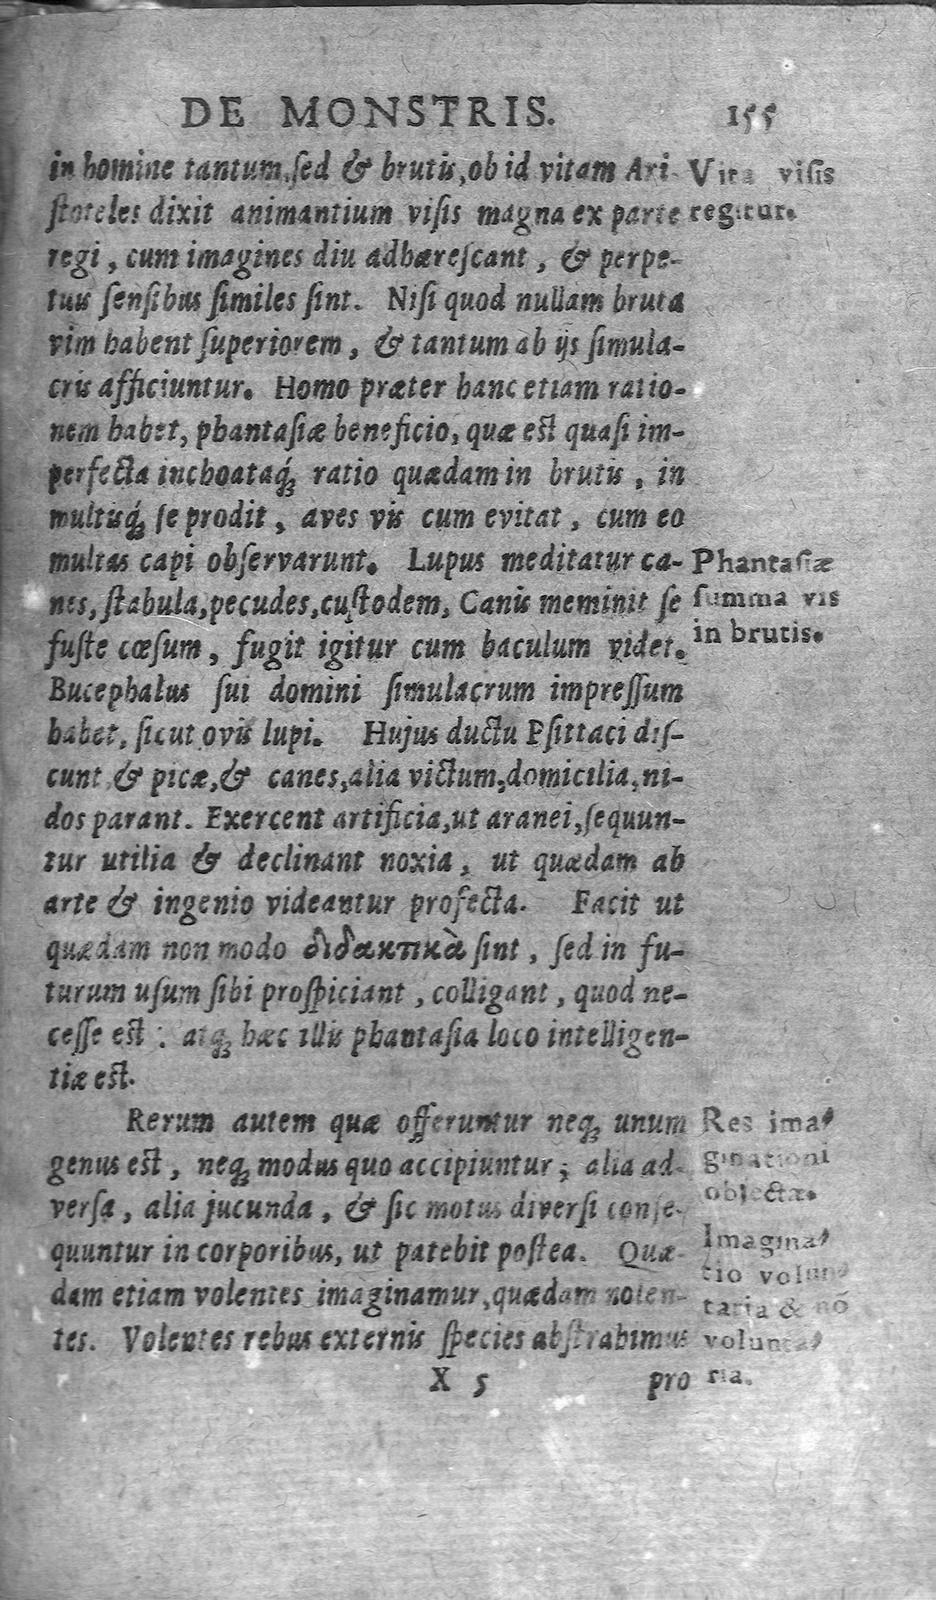 DE MONSTRIS. 155
in homine tantum, ſed & brutis, ob id vitam Ari-
ſtoteles dixit animantium viſis magna ex parte
regi, cum imagines diu adhæreſcant, & perpe-
tuis ſenſibus ſimiles ſint. Niſi quod nullam bruta
vim habent ſuperiorem, & tantum ab ijs ſimula-
cris afficiuntur. Homo præter hanc etiam ratio-
nem habet, phantaſiæ beneficio, quæ eſt quaſi im-
perfecta inchoataq́ꝫ ratio quædam in brutis, in
multisq́ꝫ ſe prodit, aves vis cum evitat, cum eo
multas capi obſervarunt. Lupus meditatur ca-
nes, ſtabula, pecudes, cuſtodem, Canis meminit ſe
fuſte cœſum, fugit igitur cum baculum videt.
Bucephalus ſui domini ſimulacrum impreſſum
habet, ſicut ovis lupi. Hujus ductu Pſittaci diſ-
cunt & picæ, & canes, alia victum, domicilia, ni-
dos parant. Exercent artificia, ut aranei, ſequun-
tur utilia & declinant noxia, ut quædam ab
arte & ingenio videantur profecta. Facit ut
quædam non modo διδακτικὰ ſint, ſed in fu-
turum uſum ſibi proſpiciant, colligant, quod ne-
ceſſe eſt: atqꝫ hæc illis phantaſia loco intelligen-
tiæ eſt.
Rerum autem quæ offeruntur neqꝫ unum
genus eſt, neqꝫ modus quo accipiuntur; alia ad-
verſa, alia jucunda, & ſic motus diverſi conſe-
quuntur in corporibus, ut patebit poſtea. Quæ-
dam etiam volentes imaginamur, quædam nolen-
tes. Volentes rebus externis ſpecies abſtrahimus
X 5 pro
Vita viſis
regitur.
Phantaſiæ
ſumma vis
in brutis.
Res ima-
ginationi
objectæ.
Imagina-
tio volun-
taria & nō
volunta-
ria.